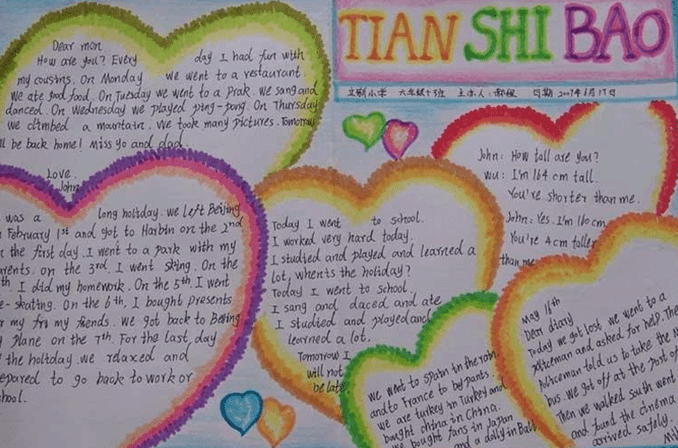 TIAN SHI BAO
Dear mon
How are you? Every day I had fun with
my cousins. On Monday we went to a restaurant.
We ate good food. On Tuesday we went to a prak. We sang and
danced. On Wednesday we played ping-pong. On Thursday
we climbed a mountain. We took many pictures. Tomorrow
ll be back home! Miss yo and dad.
Love.
John
was a long holiday. we left Beijing
February 1st and got to Harbin on the 2nd
the first day. I went to a park with my
rents. on the 3rd I went skiing. On the
th I did my homework. On the 5th I went
e-skating. On the 6th, I bought presents
r my friends. We got back to Beijing
plane on the 7th. For the last day
the holiday. we rdaxed and
epared to go back to work or
hool.
Today I went to school.
I worked very hard today.
I studied and played and learned a
lot, when's the holiday?
Today I went to school
I sang and daced and ate
I studied and played and
learned a lot.
Tomorrow I
will not
be late
John: How tall are you?
wu: I'm 164 cm tall.
You're shorter than me.
John: Yes. I'm 160 cm
You're 4 cm taller
than me
We went to Spain in the
and to France to by pants
we are turkey in Turkey and
bught china in China.
We bought fans in Japan
and a dolly in Bali
May 16th
Dear diary
Today we got lost. we went to a
Policeman and asked for help. The
Policeman told us to take the
bus. we got off at the post of
Then we walked south went
and fund the cinema
arrived safely.